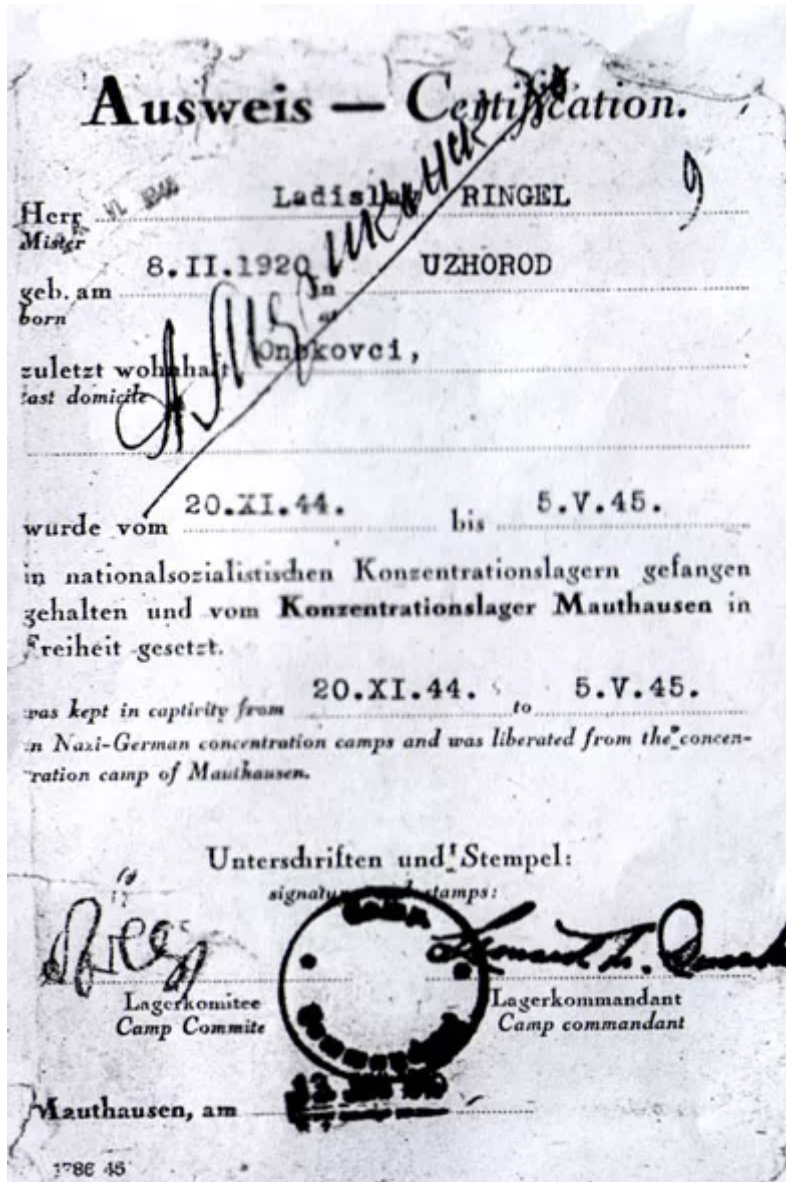 Ausweis — Certification.
Herr Ladislav RINGEL
Mister
geb. am 8.II.1920 in UZHOROD
born at
zuletzt wohnhaft Onokovci,
last domicile
wurde vom 20.XI.44. bis 5.V.45.
in nationalsozialistischen Konzentrationslagern gefangen
gehalten und vom Konzentrationslager Mauthausen in
Freiheit gesetzt.
was kept in captivity from 20.XI.44. to 5.V.45.
in Nazi-German concentration camps and was liberated from the concen-
tration camp of Mauthausen.
Unterschriften und Stempel:
signatures and stamps:
Lagerkomitee Lagerkommandant
Camp Commite Camp commandant
Mauthausen, am
1786 45